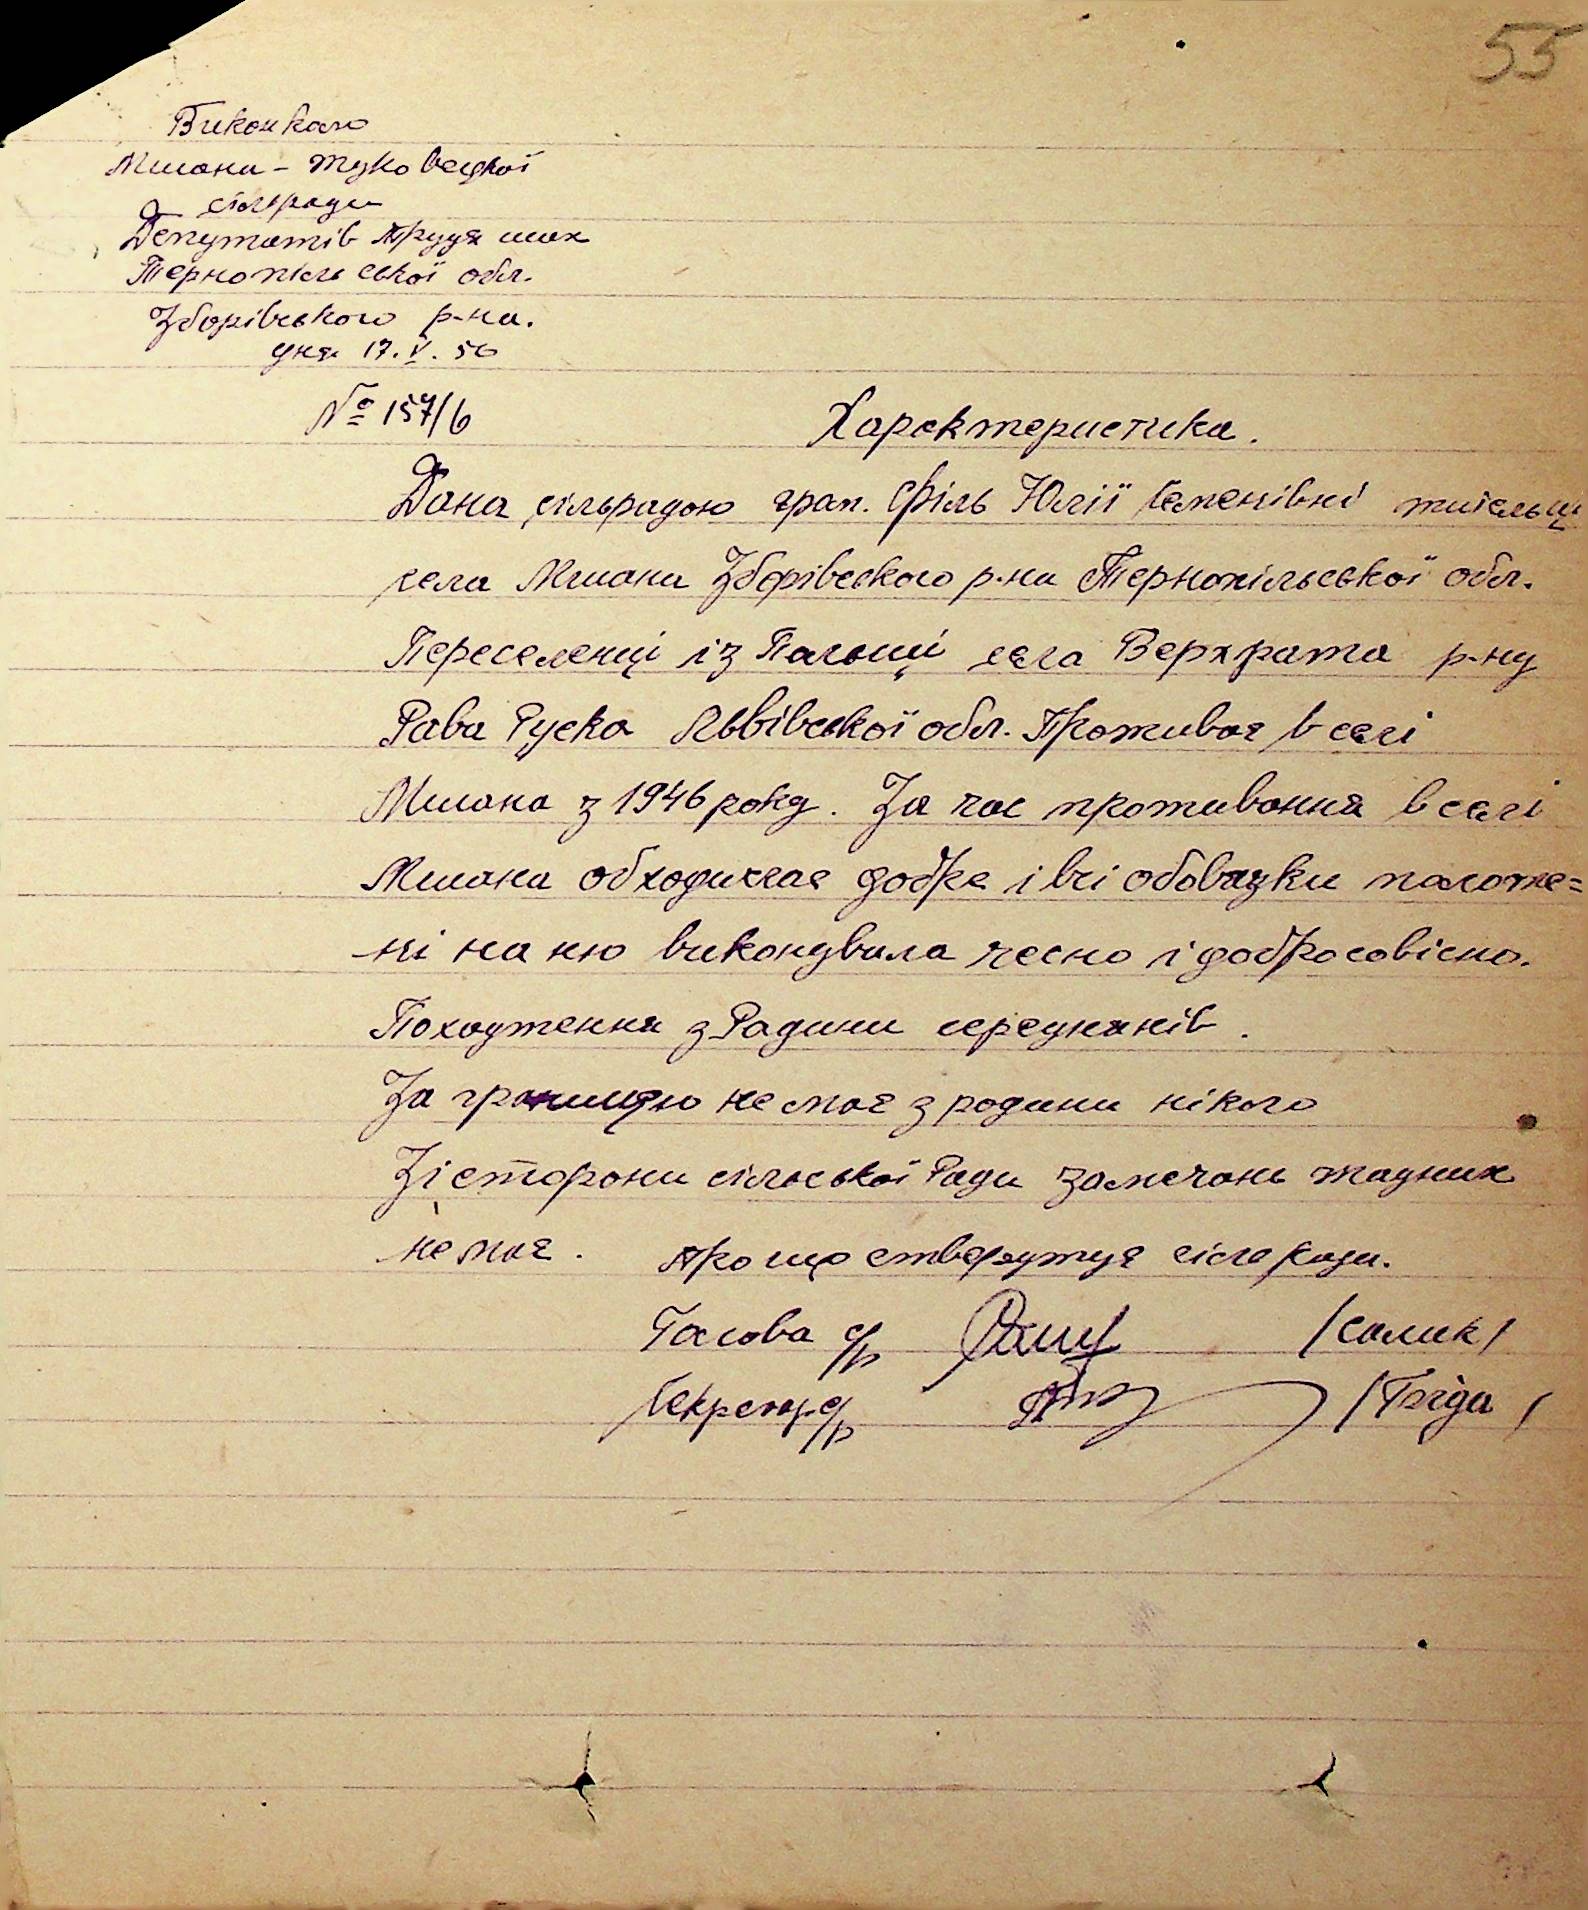 55
Виконком
Млино-Жуковецкої
сільради
Депутатів трудящих
Тернопільської обл.
Зборівського р-на.
дня 17.V.56
№ 157/6
Характеристика.
Дана сільрадою гром. Філь Юлії Семенівні жительці
села Млинки Зборівского р-на Тернопільської обл.
Переселенці із Польщі села Верхрата р-ну
Рава Руска Львівської обл. Проживає в селі
з 1946 року. За час проживання в селі
обходилас добре і всі обовязки положе=
ні на ню виконувала чесно і добросовісно.
Походження з Радини середняків.
За границею не має з родини нікого
Зі сторони сільської Ради замечань жадних
не має. про що стверджує сільрада.
Голова с/р /Солик/
Секретар с/р